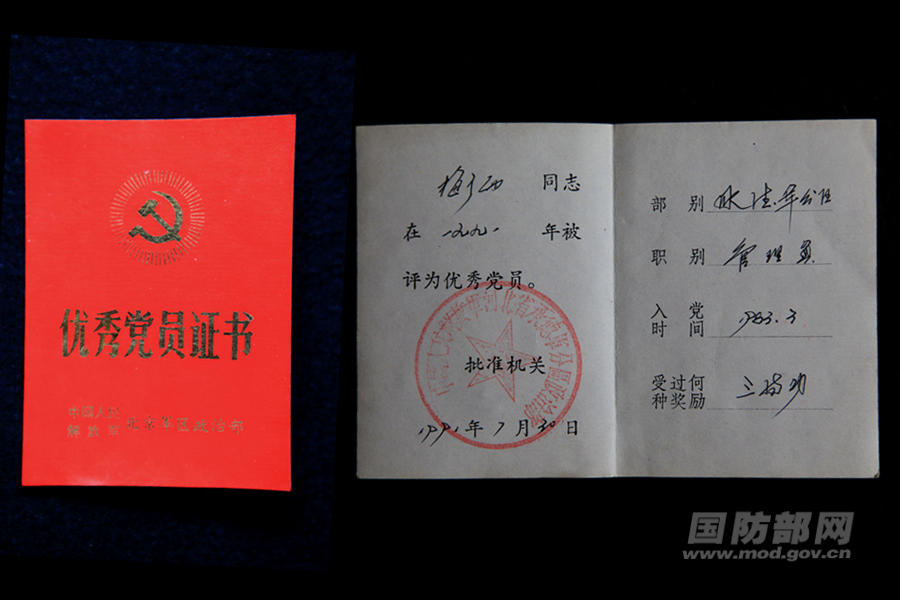 优秀党员证书
中国人民
解放军 北京军区政治部
同志
在 一九九一 年被
评为优秀党员。
批准机关
1991年7月30日
部别 承德军分区
职别 管理员
入党
时间 1983.3
受过何
种奖励 三等功
国防部网
www.mod.gov.cn